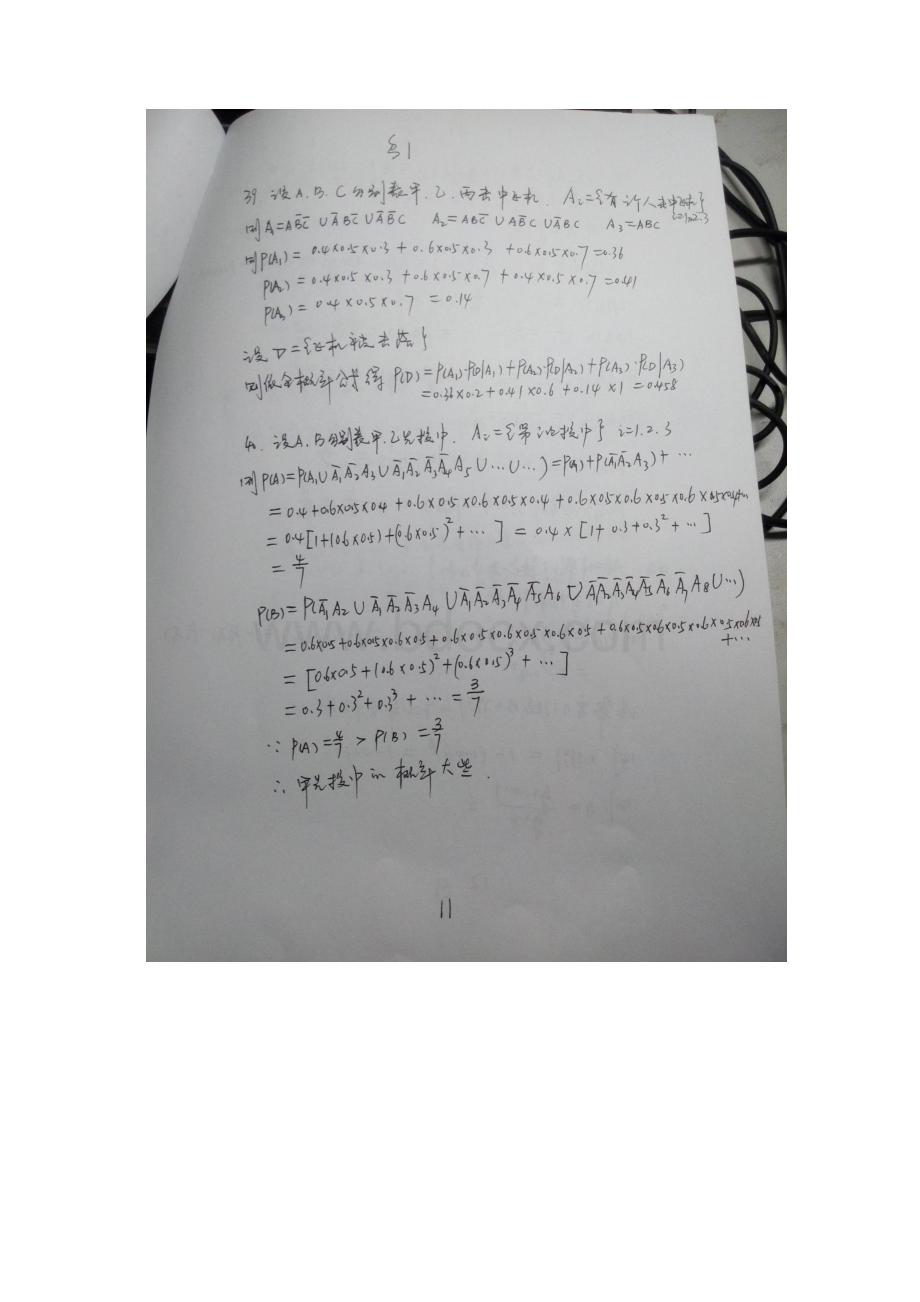 §1
39. 设A.B.C分别表甲.乙.丙击中飞机. Aᵢ={有i个人击中飞机} i=1.2.3
则A₁=AB̅C̅∪A̅BC̅∪A̅B̅C A₂=ABC̅∪AB̅C∪A̅BC A₃=ABC
则P(A₁)=0.4×0.5×0.3+0.6×0.5×0.3+0.6×0.5×0.7=0.36
P(A₂)=0.4×0.5×0.3+0.6×0.5×0.7+0.4×0.5×0.7=0.41
P(A₃)=0.4×0.5×0.7=0.14
设D={飞机被击落}
则依全概率公式得 P(D)=P(A₁)·P(D|A₁)+P(A₂)·P(D|A₂)+P(A₃)·P(D|A₃)
=0.36×0.2+0.41×0.6+0.14×1=0.458
40. 设A.B分别表甲.乙先投中. Aᵢ={第i次投中} i=1.2.3
则P(A)=P(A₁∪A̅₁A̅₂A₃∪A̅₁A̅₂A̅₃A̅₄A₅∪…∪…)=P(A₁)+P(A̅₁A̅₂A₃)+…
=0.4+0.6×0.5×0.4+0.6×0.5×0.6×0.5×0.4+0.6×0.5×0.6×0.5×0.6×0.5×0.4+…
=0.4[1+(0.6×0.5)+(0.6×0.5)²+…]=0.4×[1+0.3+0.3²+…]
=4/7
P(B)=P(A̅₁A₂∪A̅₁A̅₂A̅₃A₄∪A̅₁A̅₂A̅₃A̅₄A̅₅A₆∪A̅₁A̅₂A̅₃A̅₄A̅₅A̅₆A̅₇A₈∪…)
=0.6×0.5+0.6×0.5×0.6×0.5+0.6×0.5×0.6×0.5×0.6×0.5+0.6×0.5×0.6×0.5×0.6×0.5×0.6×0.5+…
=[0.6×0.5+(0.6×0.5)²+(0.6×0.5)³+…]
=0.3+0.3²+0.3³+…=3/7
∵P(A)=4/7>P(B)=3/7
∴甲先投中的概率大些.
11